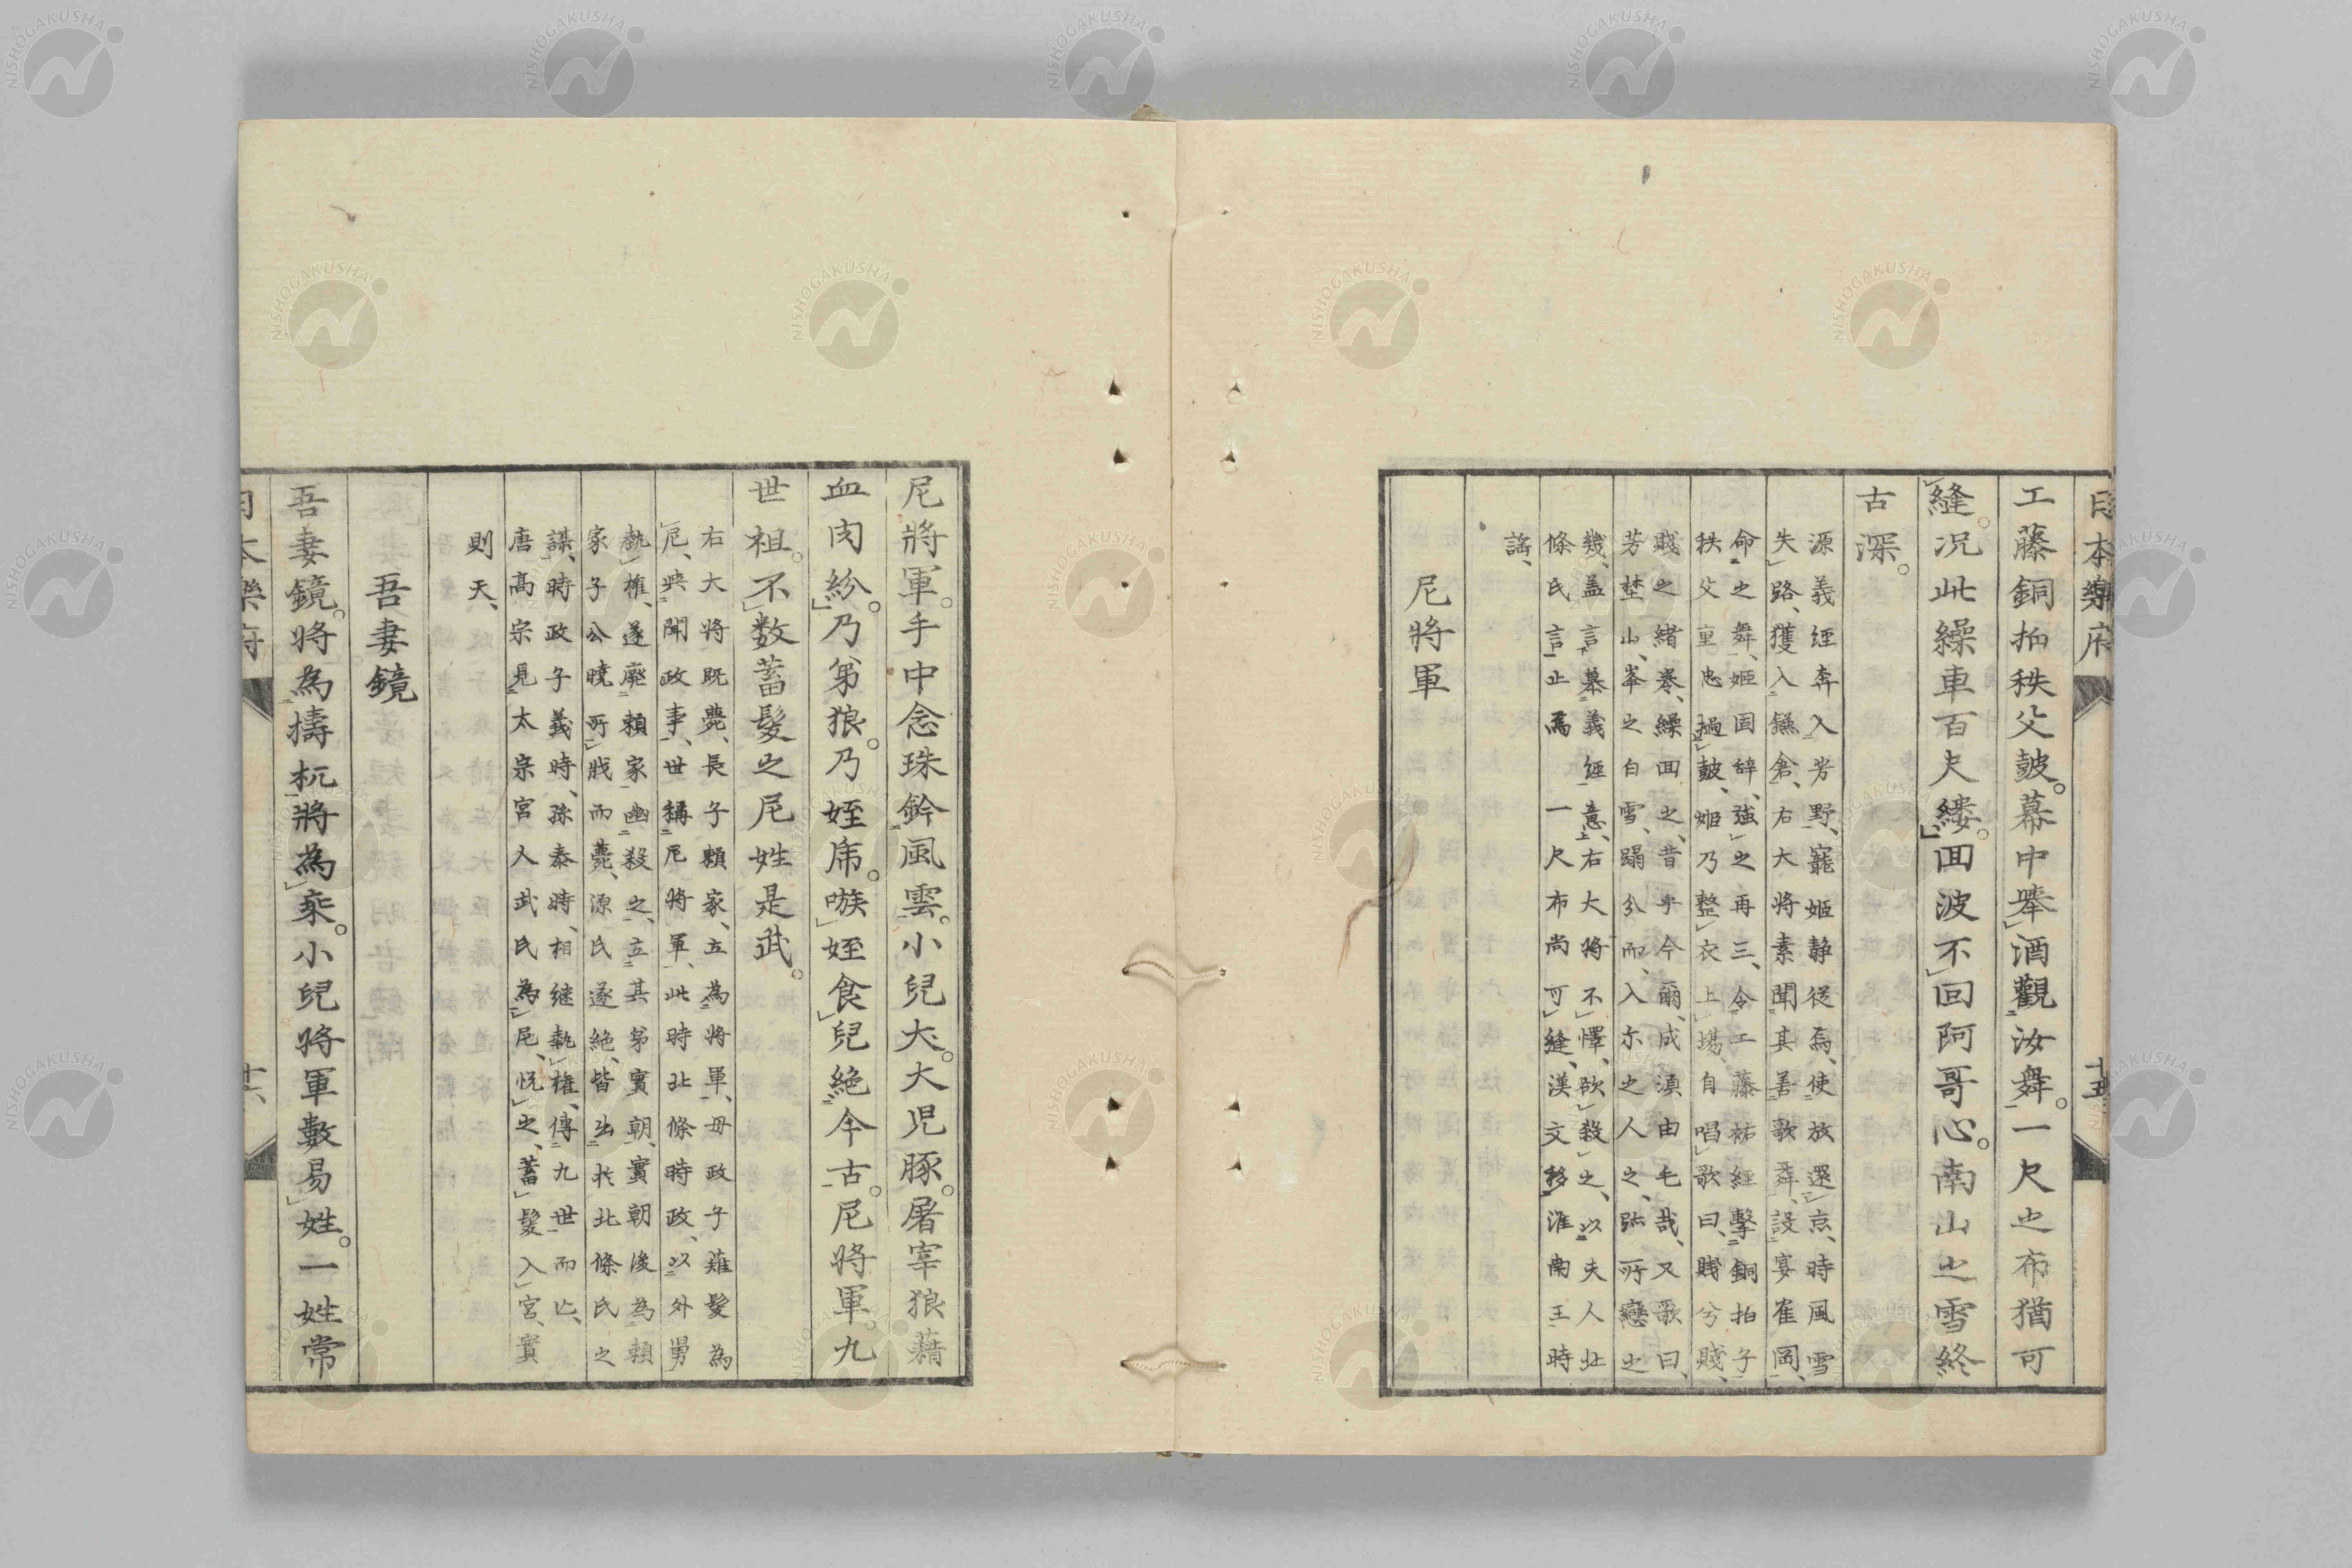 日本樂府
十五
工藤銅拍秩父鼓。幕中舉酒觀汝舞。一尺之布猶可
縫。況此繰車百尺縷。回波不回阿哥心。南山之雪終
古深。
源義經奔入芳野、寵姬靜從焉、使放還京、時風雪
失路、獲入鎌倉、右大將素聞其善歌舞、設宴崔岡、
命之舞、姬固辞、強之再三、令工藤祐經擊銅拍子
秩父重忠撾鼓、姬乃整衣上場、自唱歌曰、賤兮賤、
賤之緒卷、繰回之、昔乎今爾、成須由毛哉、又歌曰、
芳埜山、峯之白雪、蹋分而、入尓之人之、跡所戀之
幾、盖言慕義經意、右大將不懌、欲殺之、以夫人北
條氏言止焉 一尺布尚可縫、漢文移淮南王時
謠、
尼將軍
尼將軍。手中念珠鈐風雲。小兒犬。大児豚。屠宰狼藉
血肉紛。乃弟狼。乃姪乕。嗾姪食兒絶今古。尼將軍。九
世祖。不数蓄髮之尼姓是武。
右大将既薨、長子頼家、立為将軍、母政子薙髮為
尼、與聞政事、世稱尼將軍、此時北條時政、以外舅
執權、遂廃頼家幽殺之、立其弟實朝、實朝後為頼
家子公曉所戕而薨、源氏遂絶、皆出於北條氏之
謀、時政子義時、孫泰時、相継執權、傳九世而亡、
唐高宗見太宗宮人武氏為尼、悦之、蓄髮入宮、實
則天、
吾妻鏡
吾妻鏡。將為擣杌將為乘。小兒將軍數易姓。一姓常
日本樂府
十六